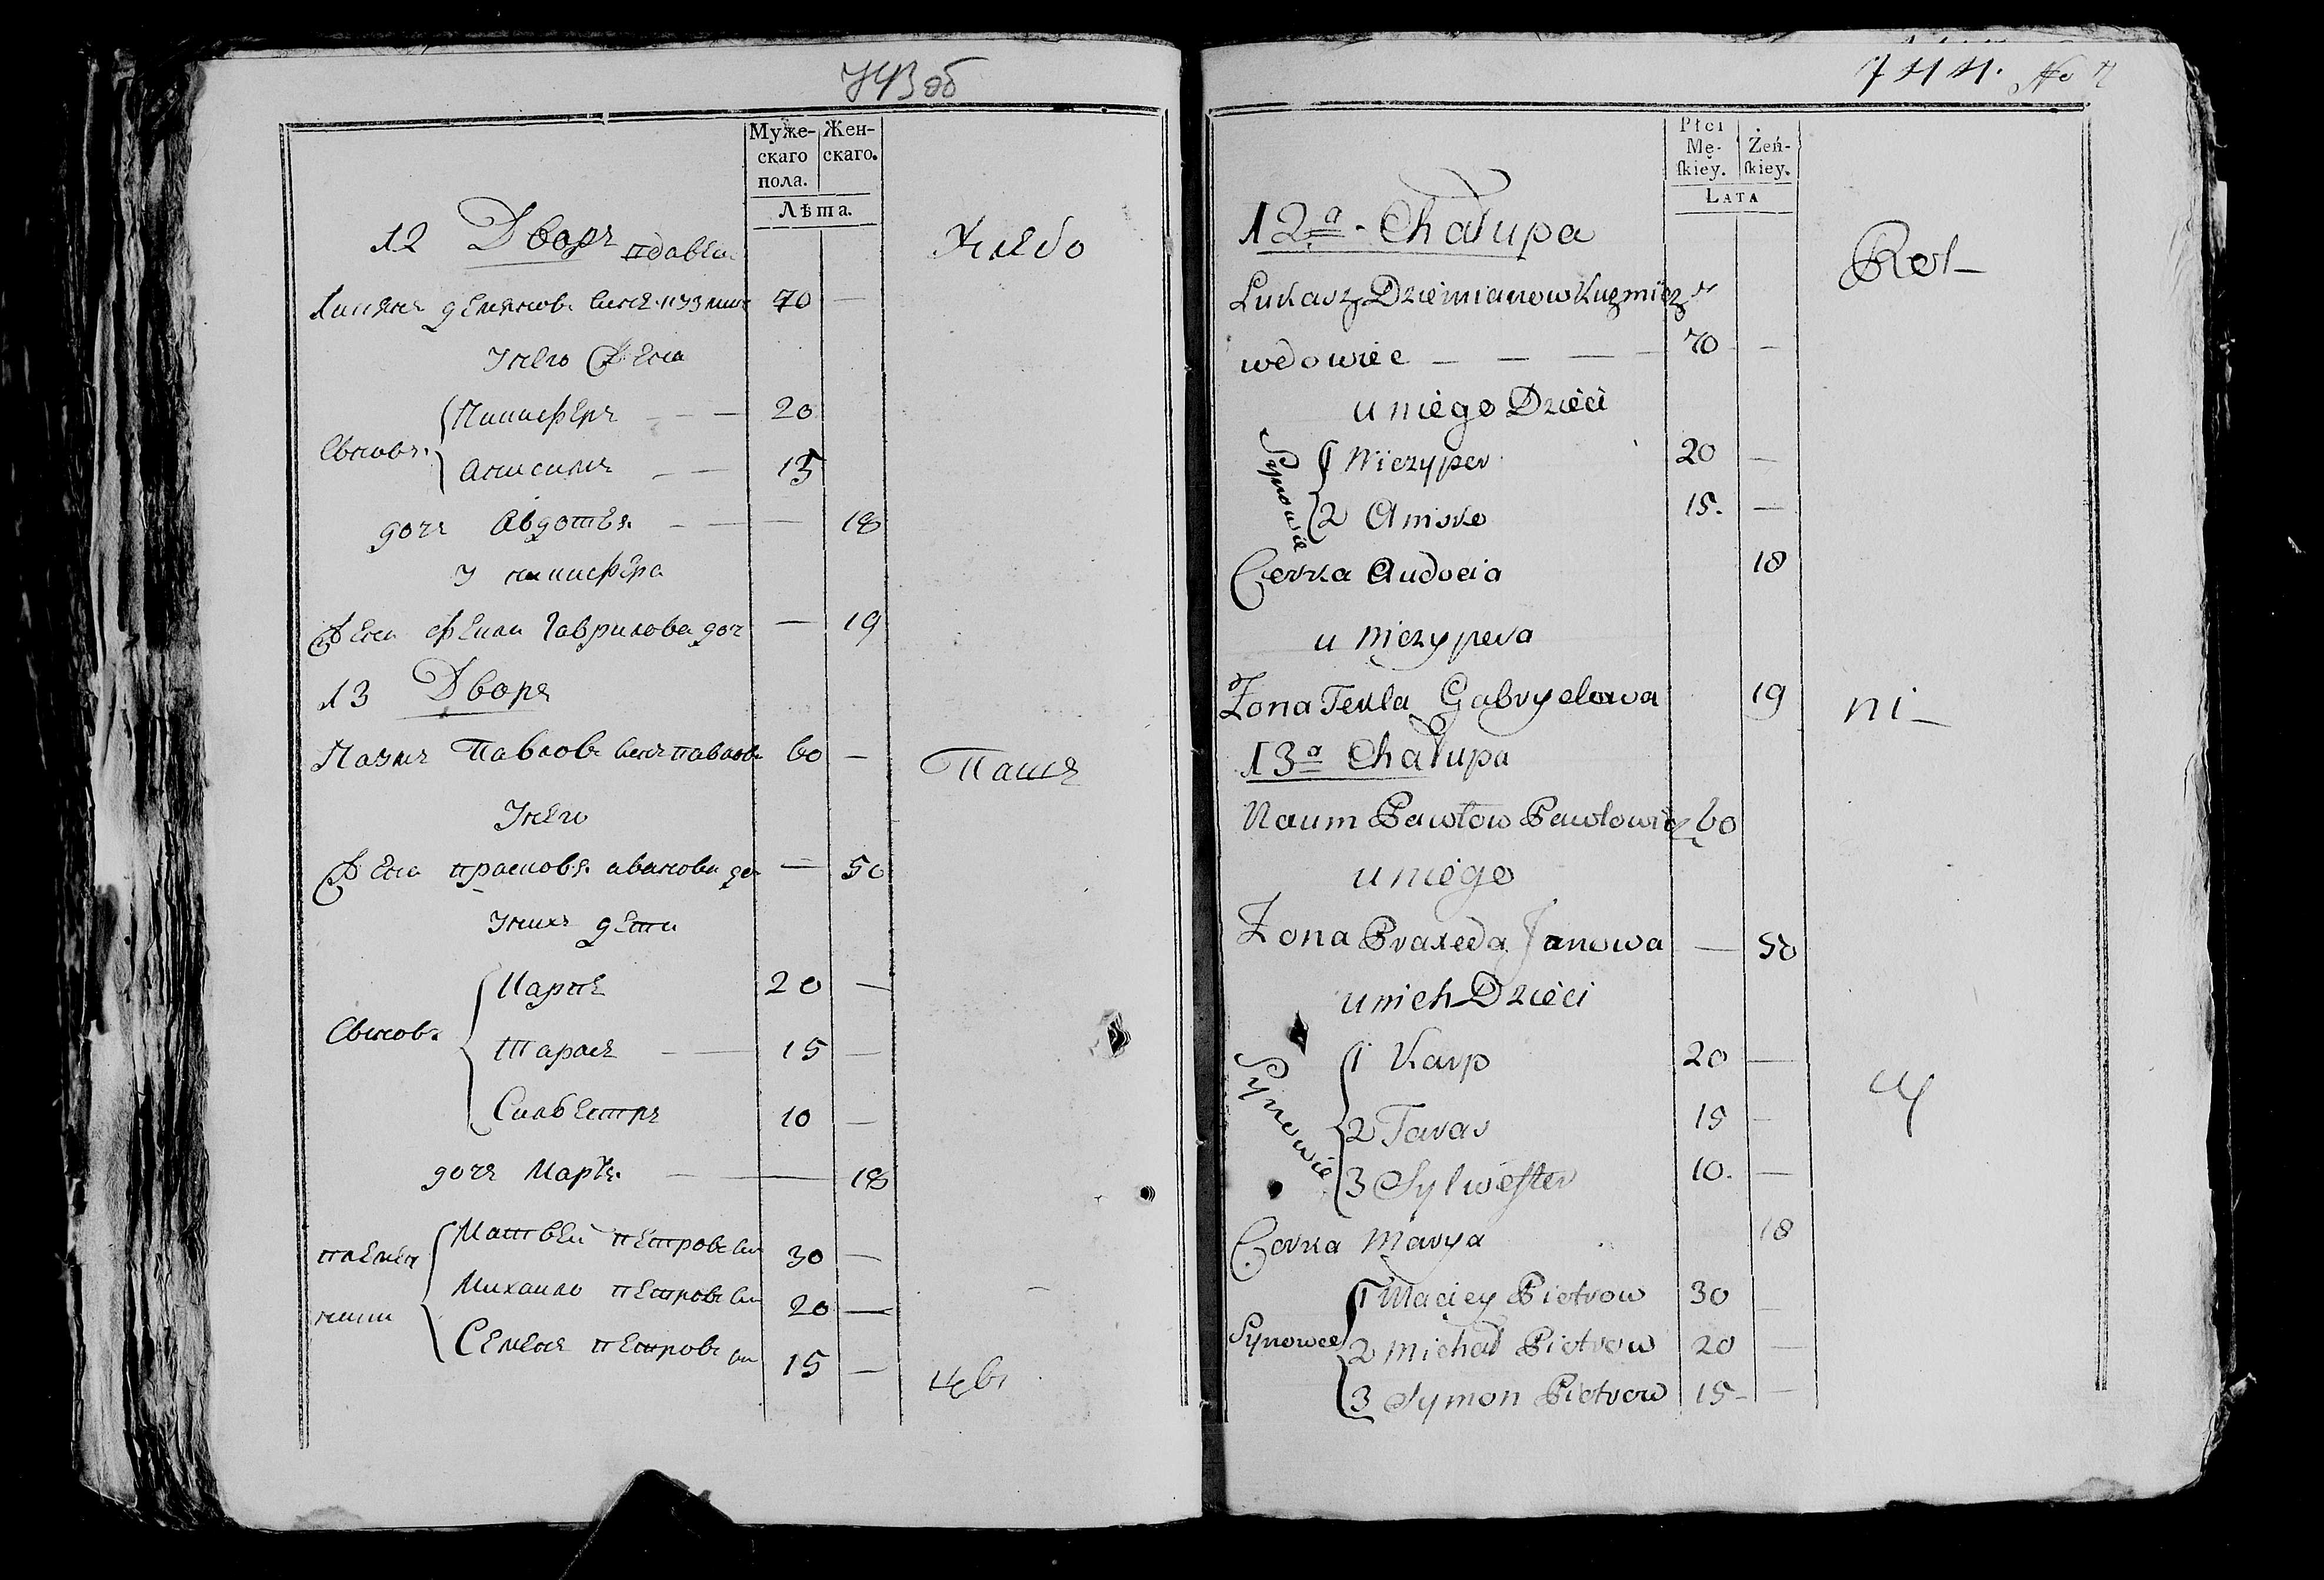 743 об
Муже-
скаго
пола.
Жен-
скаго.
Лѣта.
12 Дворъ вдовец
Хлебо
Лукянъ Демянов сынъ Кузмич 70 —
У него Жена
Сыновъя
Ничиферъ — — 20
Анисимъ — — 15
дочь Авдотья — — — 18
У Ничифера
Жена фекла Гаврилова доч — 19
13 Дворъ
Наумъ Павлов сынъ Павлов 60 —
Паш
У него
Жена Прасковя Иванова до — 50
У нихъ дети
Сынов.
Карпъ 20 —
Тарасъ — — 15 —
Силвестръ 10 —
дочь Маръя — — 18
племен
ники
Матвей Петров сы 30 —
Михайло Петров сы 20 —
Семенъ Петров сы 15 —
цы
744. No 7
Płci
Mę-
ſkiey.
Żeń-
ſkiey.
LATA
12a - Chałupa
Rol—
Łukasz Dziemianow Kuzmicz
wdowiec — — — 70 —
u niego Dzieci
Synowie
1 Niczyper 20 —
2 Anisko 15. —
Corka Audocia 18
u Niczypera
Żona Tekla Gabryelowa 19
ni—
13a Chałupa
Naum Pawłow Pawłowicz 60
u niego
Żona Praxeda Janowa — 50
u nich Dzieci
Synowie
1 Karp 20 —
2 Taras 15 —
cy
3 Sylweſter 10. —
Corka Marya 18
Synowce
1 Maciey Pietrow 30 —
2 Michał Pietrow 20 —
3 Symon Pietrow 15 —